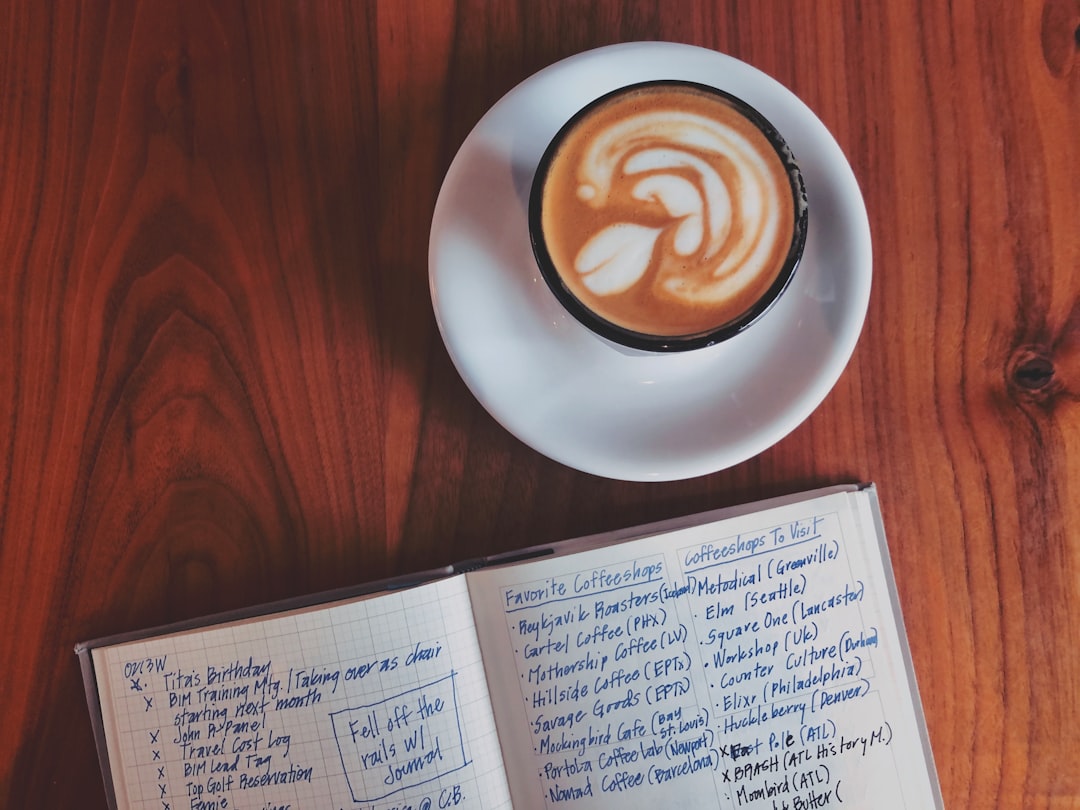 01/13W
x. Tita's Birthday
x BIM Training Mtg. / Taking over as chair
starting next month
x John A Panel
x Travel Cost Log
x BIM Lead Tag
x Top Golf Reservation
Fell off the
rails w/
Journal
@ C.B.
Favorite Coffeeshops
· Reykjavik Roasters (Iceland)
· Cartel Coffee (PHX)
· Mothership Coffee (LV)
· Hillside Coffee (EPTX)
· Savage Goods (EPTX)
· Mockingbird Cafe (Bay
St. Louis)
· Portola Coffee Lab (Newport)
· Nomad Coffee (Barcelona)
Coffeeshops To Visit
· Metodical (Greenville)
· Elm (Seattle)
· Square One (Lancaster)
· Workshop (UK)
· Counter Culture (Durham)
· Elixr (Philadelphia)
· Huckleberry (Denver)
x East Pole (ATL)
x BRASH (ATL History M.)
· Moonbird (ATL)
Butter (